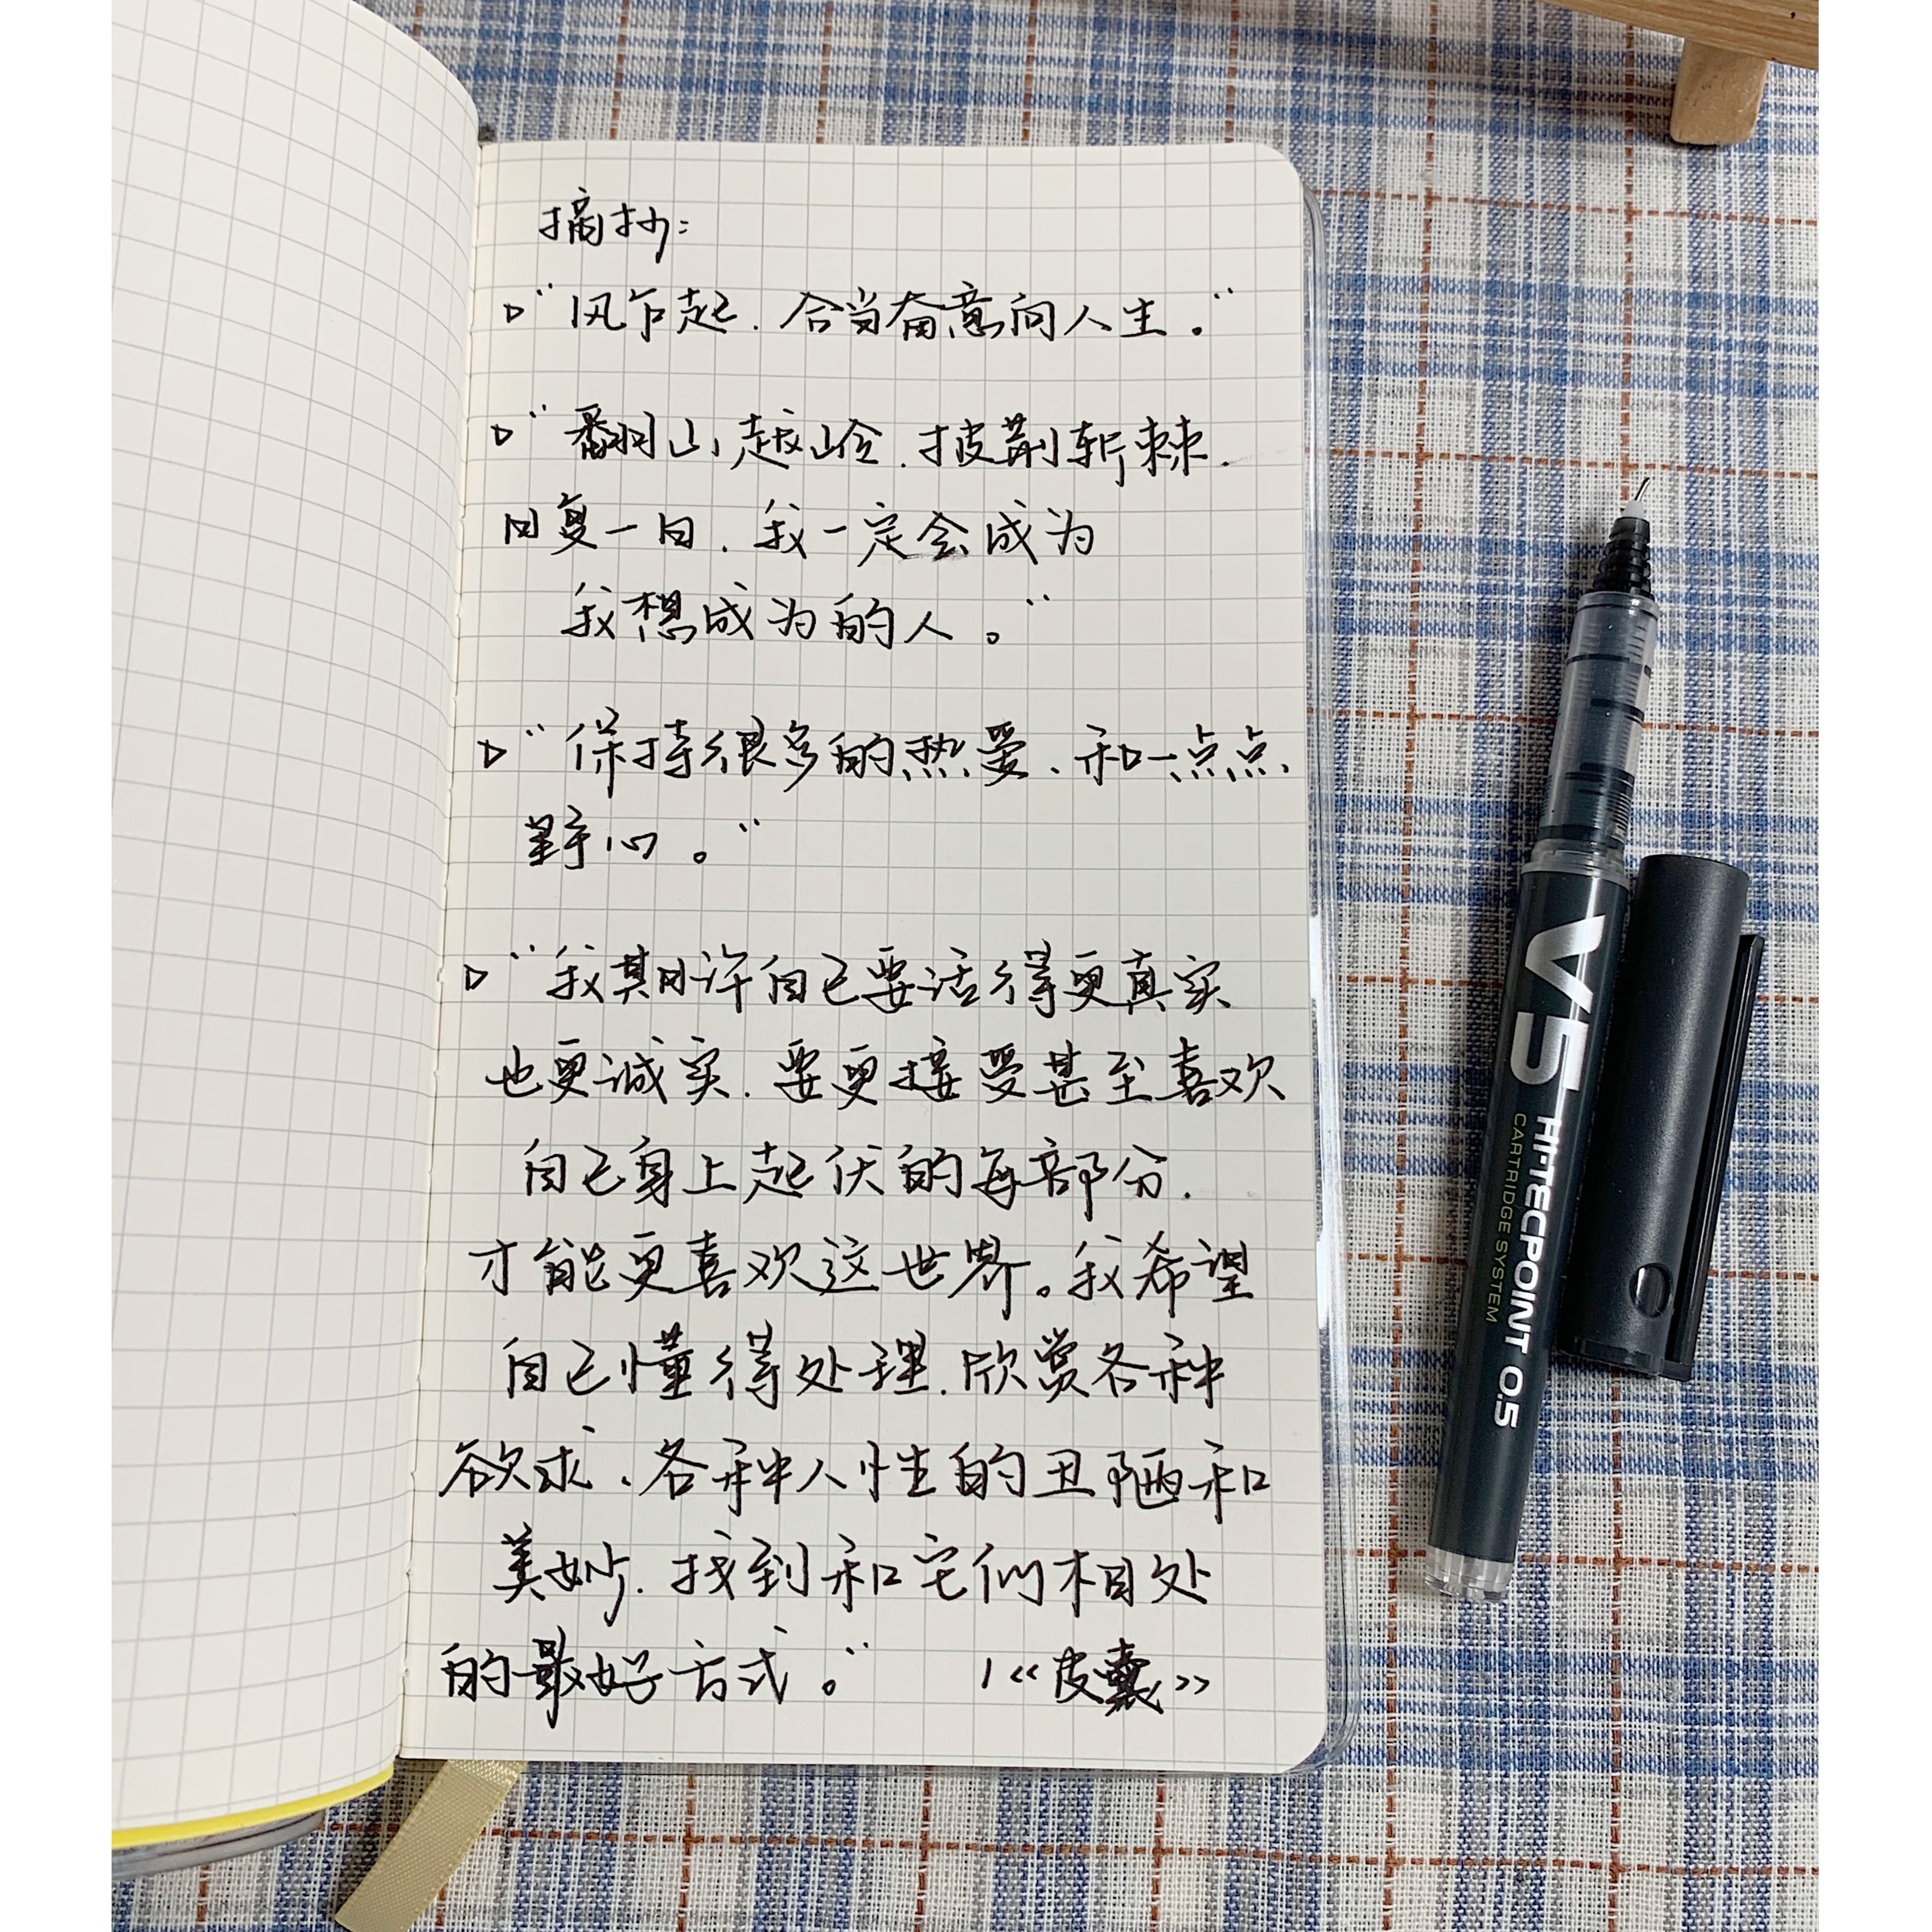 摘抄：
▷“风乍起，合当奋意向人生。”
▷“翻山越岭，披荆斩棘，
日复一日，我一定会成为
我想成为的人。”
▷“保持很多的热爱，和一点点
野心。”
▷“我期许自己要活得更真实
也更诚实，要更接受甚至喜欢
自己身上起伏的每部分，
才能更喜欢这世界。我希望
自己懂得处理、欣赏各种
欲求、各种人性的丑陋和
美妙，找到和它们相处
的最好方式。” /《皮囊》
V5
HI-TECPOINT 0.5
CARTRIDGE SYSTEM